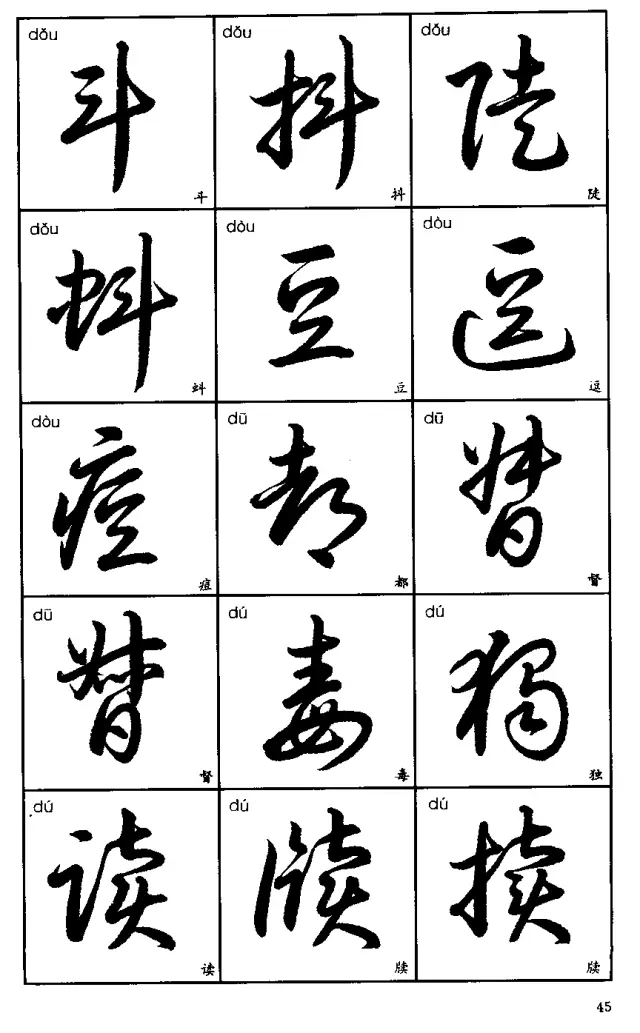 dǒu dǒu dǒu
斗 抖 陡
斗 抖 陡
dǒu dòu dòu
蚪 豆 逗
蚪 豆 逗
dòu dū dū
痘 都 督
痘 都 督
dū dú dú
督 毒 獨
督 毒 独
dú dú dú
读 牍
读 牍 牍
45